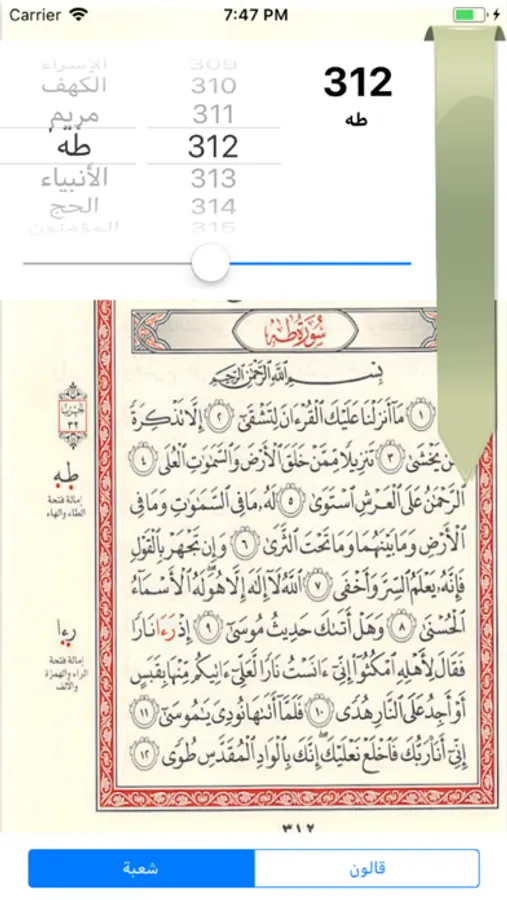 Carrier 7:47 PM
الإسراء 309
الكهف 310
مريم 311
طه 312
الأنبياء 313
الحج 314
المؤمنون 315
312
طه
سُورَةُ طه
بِسْمِ اللَّهِ الرَّحْمَٰنِ الرَّحِيمِ
١ مَآ أَنزَلْنَا عَلَيْكَ الْقُرْءَانَ لِتَشْقَىٰٓ ٢ إِلَّا تَذْكِرَةً
يَخْشَىٰ ٣ تَنزِيلًا مِّمَّنْ خَلَقَ الْأَرْضَ وَالسَّمَٰوَٰتِ الْعُلَى ٤
الرَّحْمَٰنُ عَلَى الْعَرْشِ اسْتَوَىٰ ٥ لَهُۥ مَا فِي السَّمَٰوَٰتِ وَمَا فِي
الْأَرْضِ وَمَا بَيْنَهُمَا وَمَا تَحْتَ الثَّرَىٰ ٦ وَإِن تَجْهَرْ بِالْقَوْلِ
فَإِنَّهُۥ يَعْلَمُ السِّرَّ وَأَخْفَى ٧ اللَّهُ لَآ إِلَٰهَ إِلَّا هُوَ لَهُ الْأَسْمَآءُ
الْحُسْنَىٰ ٨ وَهَلْ أَتَىٰكَ حَدِيثُ مُوسَىٰٓ ٩ إِذْ رَءَا نَارًا
فَقَالَ لِأَهْلِهِ امْكُثُوٓا إِنِّيٓ ءَانَسْتُ نَارًا لَّعَلِّيٓ ءَاتِيكُم مِّنْهَا بِقَبَسٍ
أَوْ أَجِدُ عَلَى النَّارِ هُدًى ١٠ فَلَمَّآ أَتَىٰهَا نُودِيَ يَٰمُوسَىٰٓ ١١
إِنِّيٓ أَنَا۠ رَبُّكَ فَاخْلَعْ نَعْلَيْكَ إِنَّكَ بِالْوَادِ الْمُقَدَّسِ طُوًى ١٢
الحزب
٣٢
طه
إمالة فتحة
الطاء والهاء
رءا
إمالة فتحة
الراء والهمزة
والألف
٣١٢
شعبة
قالون